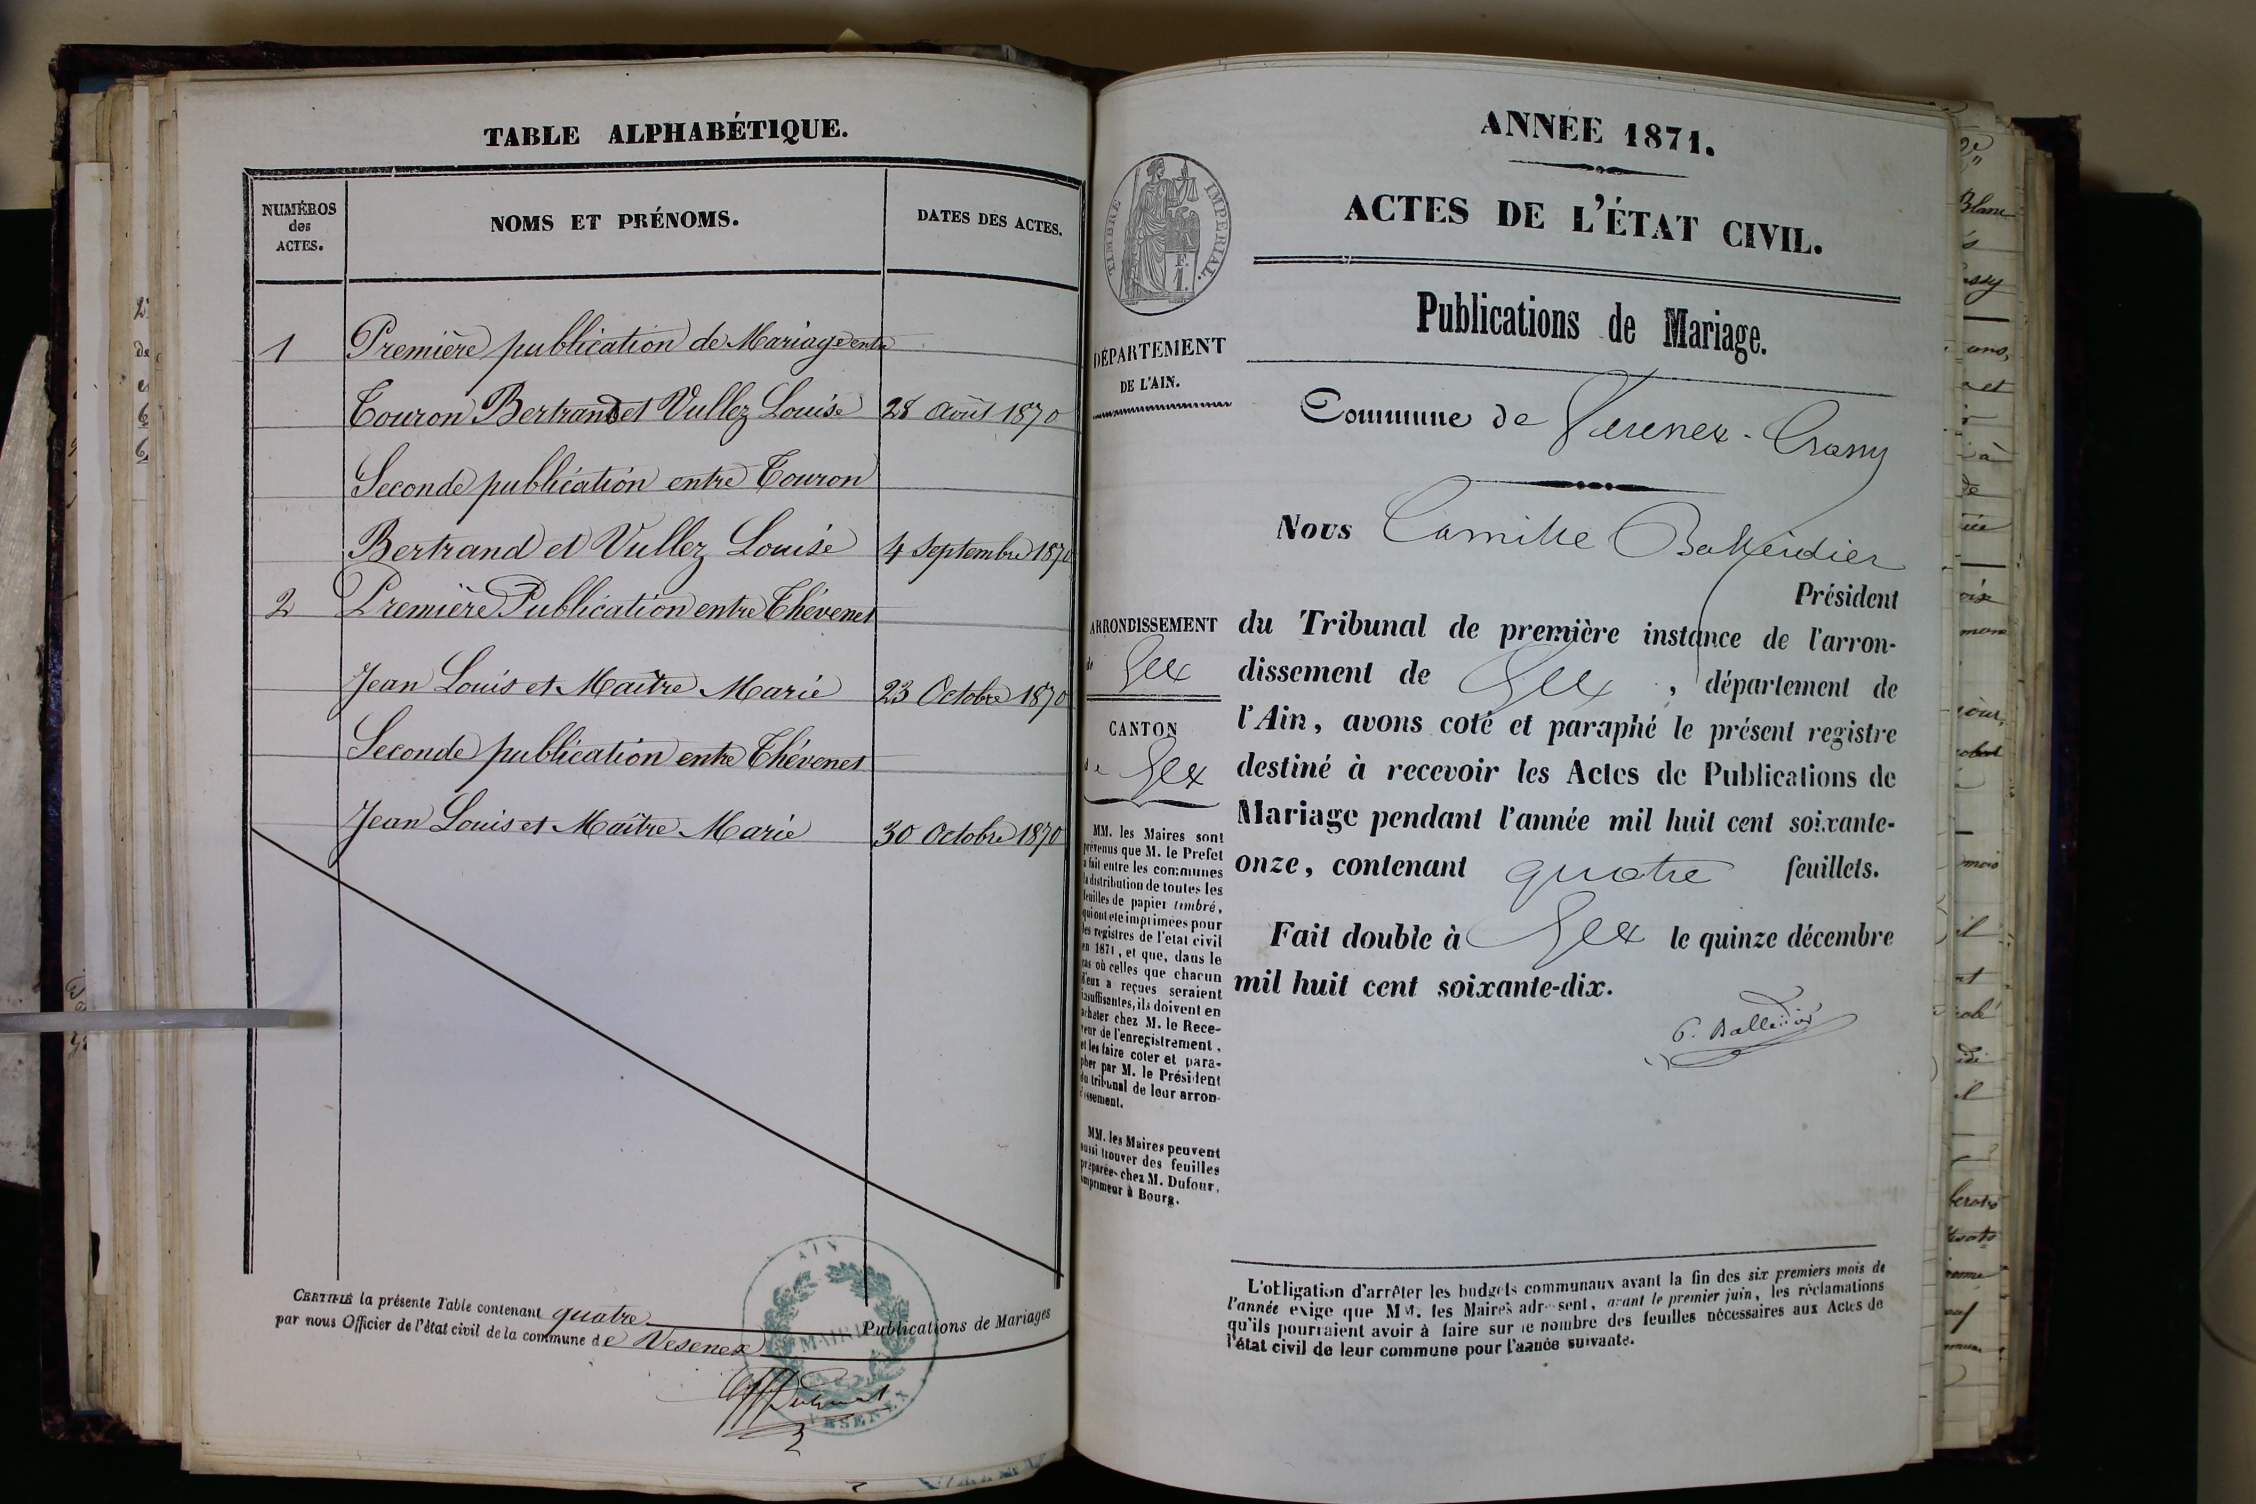 TABLE ALPHABÉTIQUE.
NUMÉROS
des
ACTES.
NOMS ET PRÉNOMS.
DATES DES ACTES.
1 Première publication de Mariage entre
Touron Bertrand et Vullez Louise 28 Août 1870
Seconde publication entre Touron
Bertrand et Vullez Louise 4 Septembre 1870
2 Première Publication entre Thévenet
Jean Louis et Maître Marie 23 Octobre 1870
Seconde publication entre Thévenet
Jean Louis et Maître Marie 30 Octobre 1870
CERTIFIÉ la présente Table contenant quatre Publications de Mariages
par nous Officier de l'état civil de la commune de Vesenex
AIN
MAIRIE
VESENEX
ANNÉE 1871.
ACTES DE L'ÉTAT CIVIL.
TIMBRE IMPÉRIAL.
F.
1.
Publications de Mariage.
DÉPARTEMENT
DE L'AIN.
Commune de Vesenex-Crassy
Nous Camille Balleidier
Président
ARRONDISSEMENT
de Gex
CANTON
de Gex
du Tribunal de première instance de l'arron-
dissement de Gex, département de
l'Ain, avons coté et paraphé le présent registre
destiné à recevoir les Actes de Publications de
Mariage pendant l'année mil huit cent soixante-
onze, contenant quatre feuillets.
Fait double à Gex le quinze décembre
mil huit cent soixante-dix.
C. Balleidier
MM. les Maires sont
prévenus que M. le Préfet
a fait entre les communes
la distribution de toutes les
feuilles de papier timbré,
qui ont été imprimées pour
les registres de l'état civil
en 1871, et que, dans le
cas où celles que chacun
d'eux a reçues seraient
insuffisantes, ils doivent en
acheter chez M. le Rece-
veur de l'enregistrement,
et les faire coter et para-
pher par M. le Président
du tribunal de leur arron-
dissement.
MM. les Maires peuvent
aussi trouver des feuilles
préparées chez M. Dufour,
imprimeur à Bourg.
L'obligation d'arrêter les budgets communaux avant la fin des six premiers mois de
l'année exige que MM. les Maires adressent, avant le premier juin, les réclamations
qu'ils pourraient avoir à faire sur le nombre des feuilles nécessaires aux Actes de
l'état civil de leur commune pour l'année suivante.